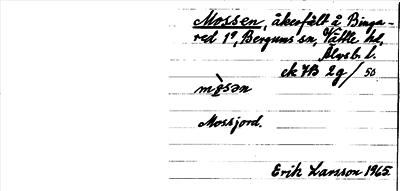 Mossen, åkerfält å Binga-
red 1⁹, Bergums sn, Vättle hd,
Älvsb. l.
ek 7B 2g/50
mo̖sən
Mossjord.
Erik Larsson 1965.